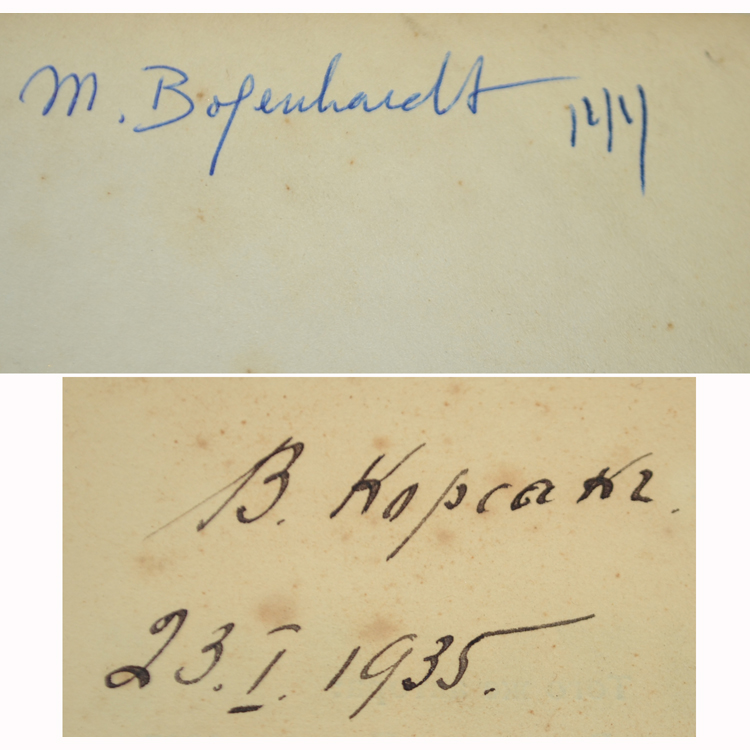 M. Bogenhardt
В. Корсакъ.
23.I.1935.